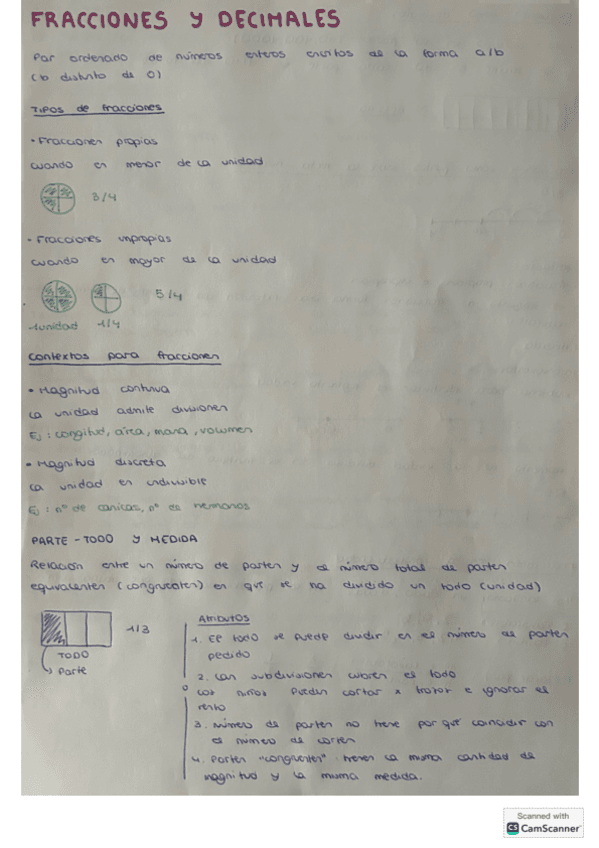 FRACCIONES Y DECIMALES
Par ordenado de números enteros escritos de la forma a/b
(b distinto de 0)
TIPOS de fracciones
• Fracciones propias
cuando es menor de la unidad
3/4
• Fracciones impropias
cuando es mayor de la unidad
5/4
1unidad 1/4
Contextos para fracciones
• Magnitud continua
La unidad admite divisiones
Ej: longitud, área, masa, volumen
• Magnitud discreta
La unidad es indivisible
Ej: nº de canicas, nº de hermanos
PARTE - TODO Y MEDIDA
Relación entre un número de partes y el número total de partes
equivalentes (congruentes) en que se ha dividido un todo (unidad)
1/3
TODO
Parte
Atributos
1. El todo se puede dividir en el número de partes
pedido
2. Las subdivisiones cubren el todo
Los niños pueden cortar x trozos e ignorar el
resto
3. Número de partes no tiene por qué coincidir con
el número de cortes
4. Partes "congruentes" tienen la misma cantidad de
magnitud y la misma medida.
Scanned with
CS CamScanner